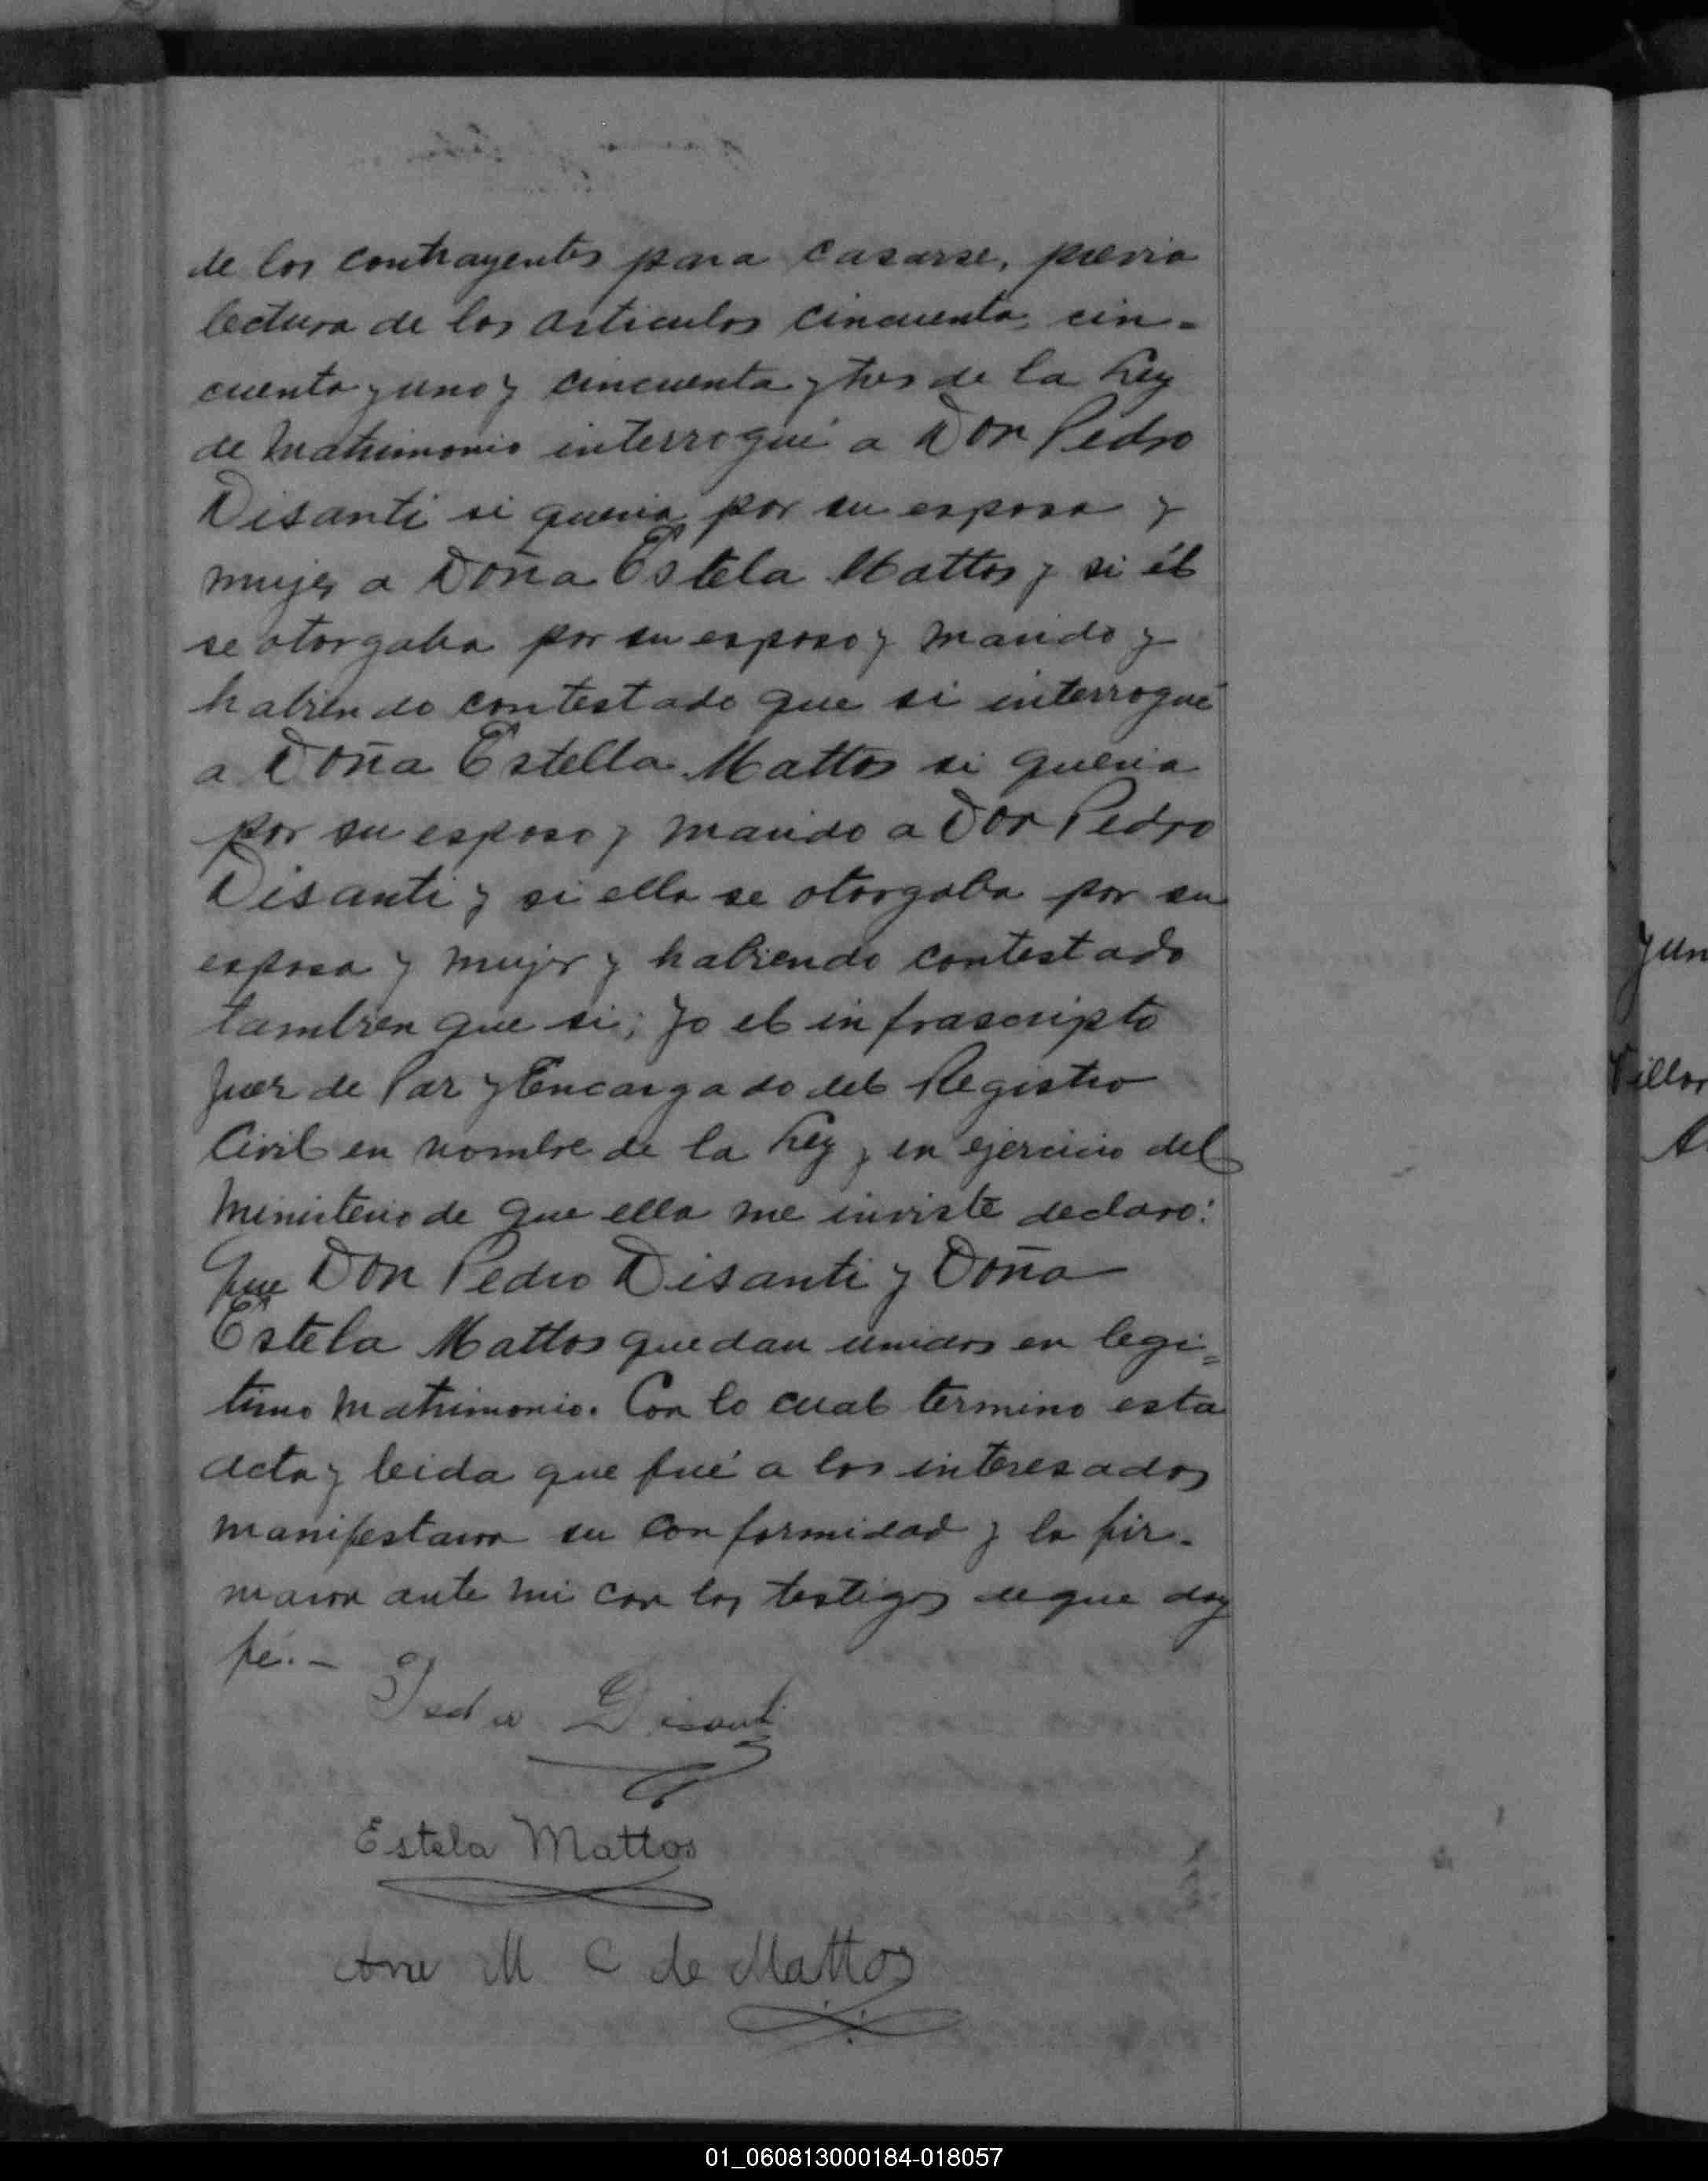 de los contrayentes para casarse, previa
lectura de los articulos cincuenta, cin-
cuenta y uno y cincuenta y tres de la Ley
de Matrimonio interrogué a Don Pedro
Disanti si queria por su esposa y
mujer a Doña Estela Mattos y si él
se otorgaba por su esposo y marido y
habiendo contestado que si interrogué
a Doña Estella Mattos si queria
por su esposo y marido a Don Pedro
Disanti y si ella se otorgaba por su
esposa y mujer y habiendo contestado
tambien que si; Yo el infrascripto
Juez de Paz y Encargado del Registro
Civil en nombre de la Ley y en ejercicio del
Ministerio de que ella me inviste declaro:
Que Don Pedro Disanti y Doña
Estela Mattos quedan unidos en legi=
timo Matrimonio. Con lo cual termino esta
acta y leida que fué a los interesados
manifestaron su conformidad y la fir-
maron ante mi con los testigos de que doy
fé.-
Pedro Disanti
Estela Mattos
Ana M C de Mattos
yun
Villar
01_060813000184-018057